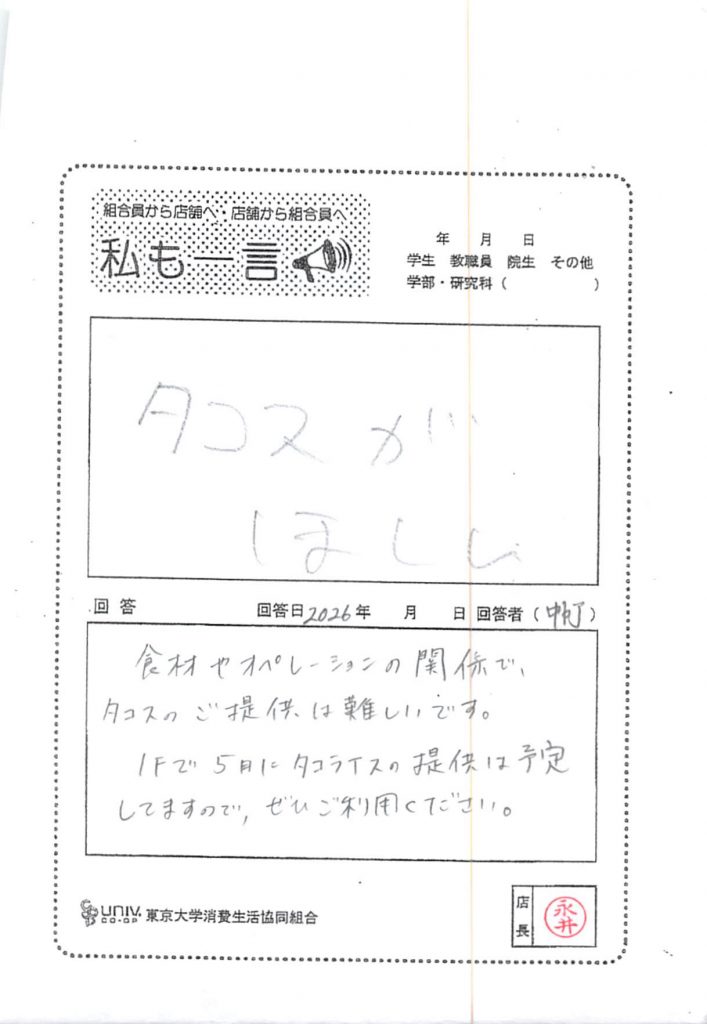 組合員から店舗へ・店舗から組合員へ
私も一言
年 月 日
学生 教職員 院生 その他
学部・研究科( )
タコスが
ほしい
回答 回答日2026年 月 日 回答者( )
食材やオペレーションの関係で、
タコスのご提供は難しいです。
1Fで5月にタコライスの提供は予定
してますので、ぜひご利用ください。
UNIV. CO-OP 東京大学消費生活協同組合
店長
永井